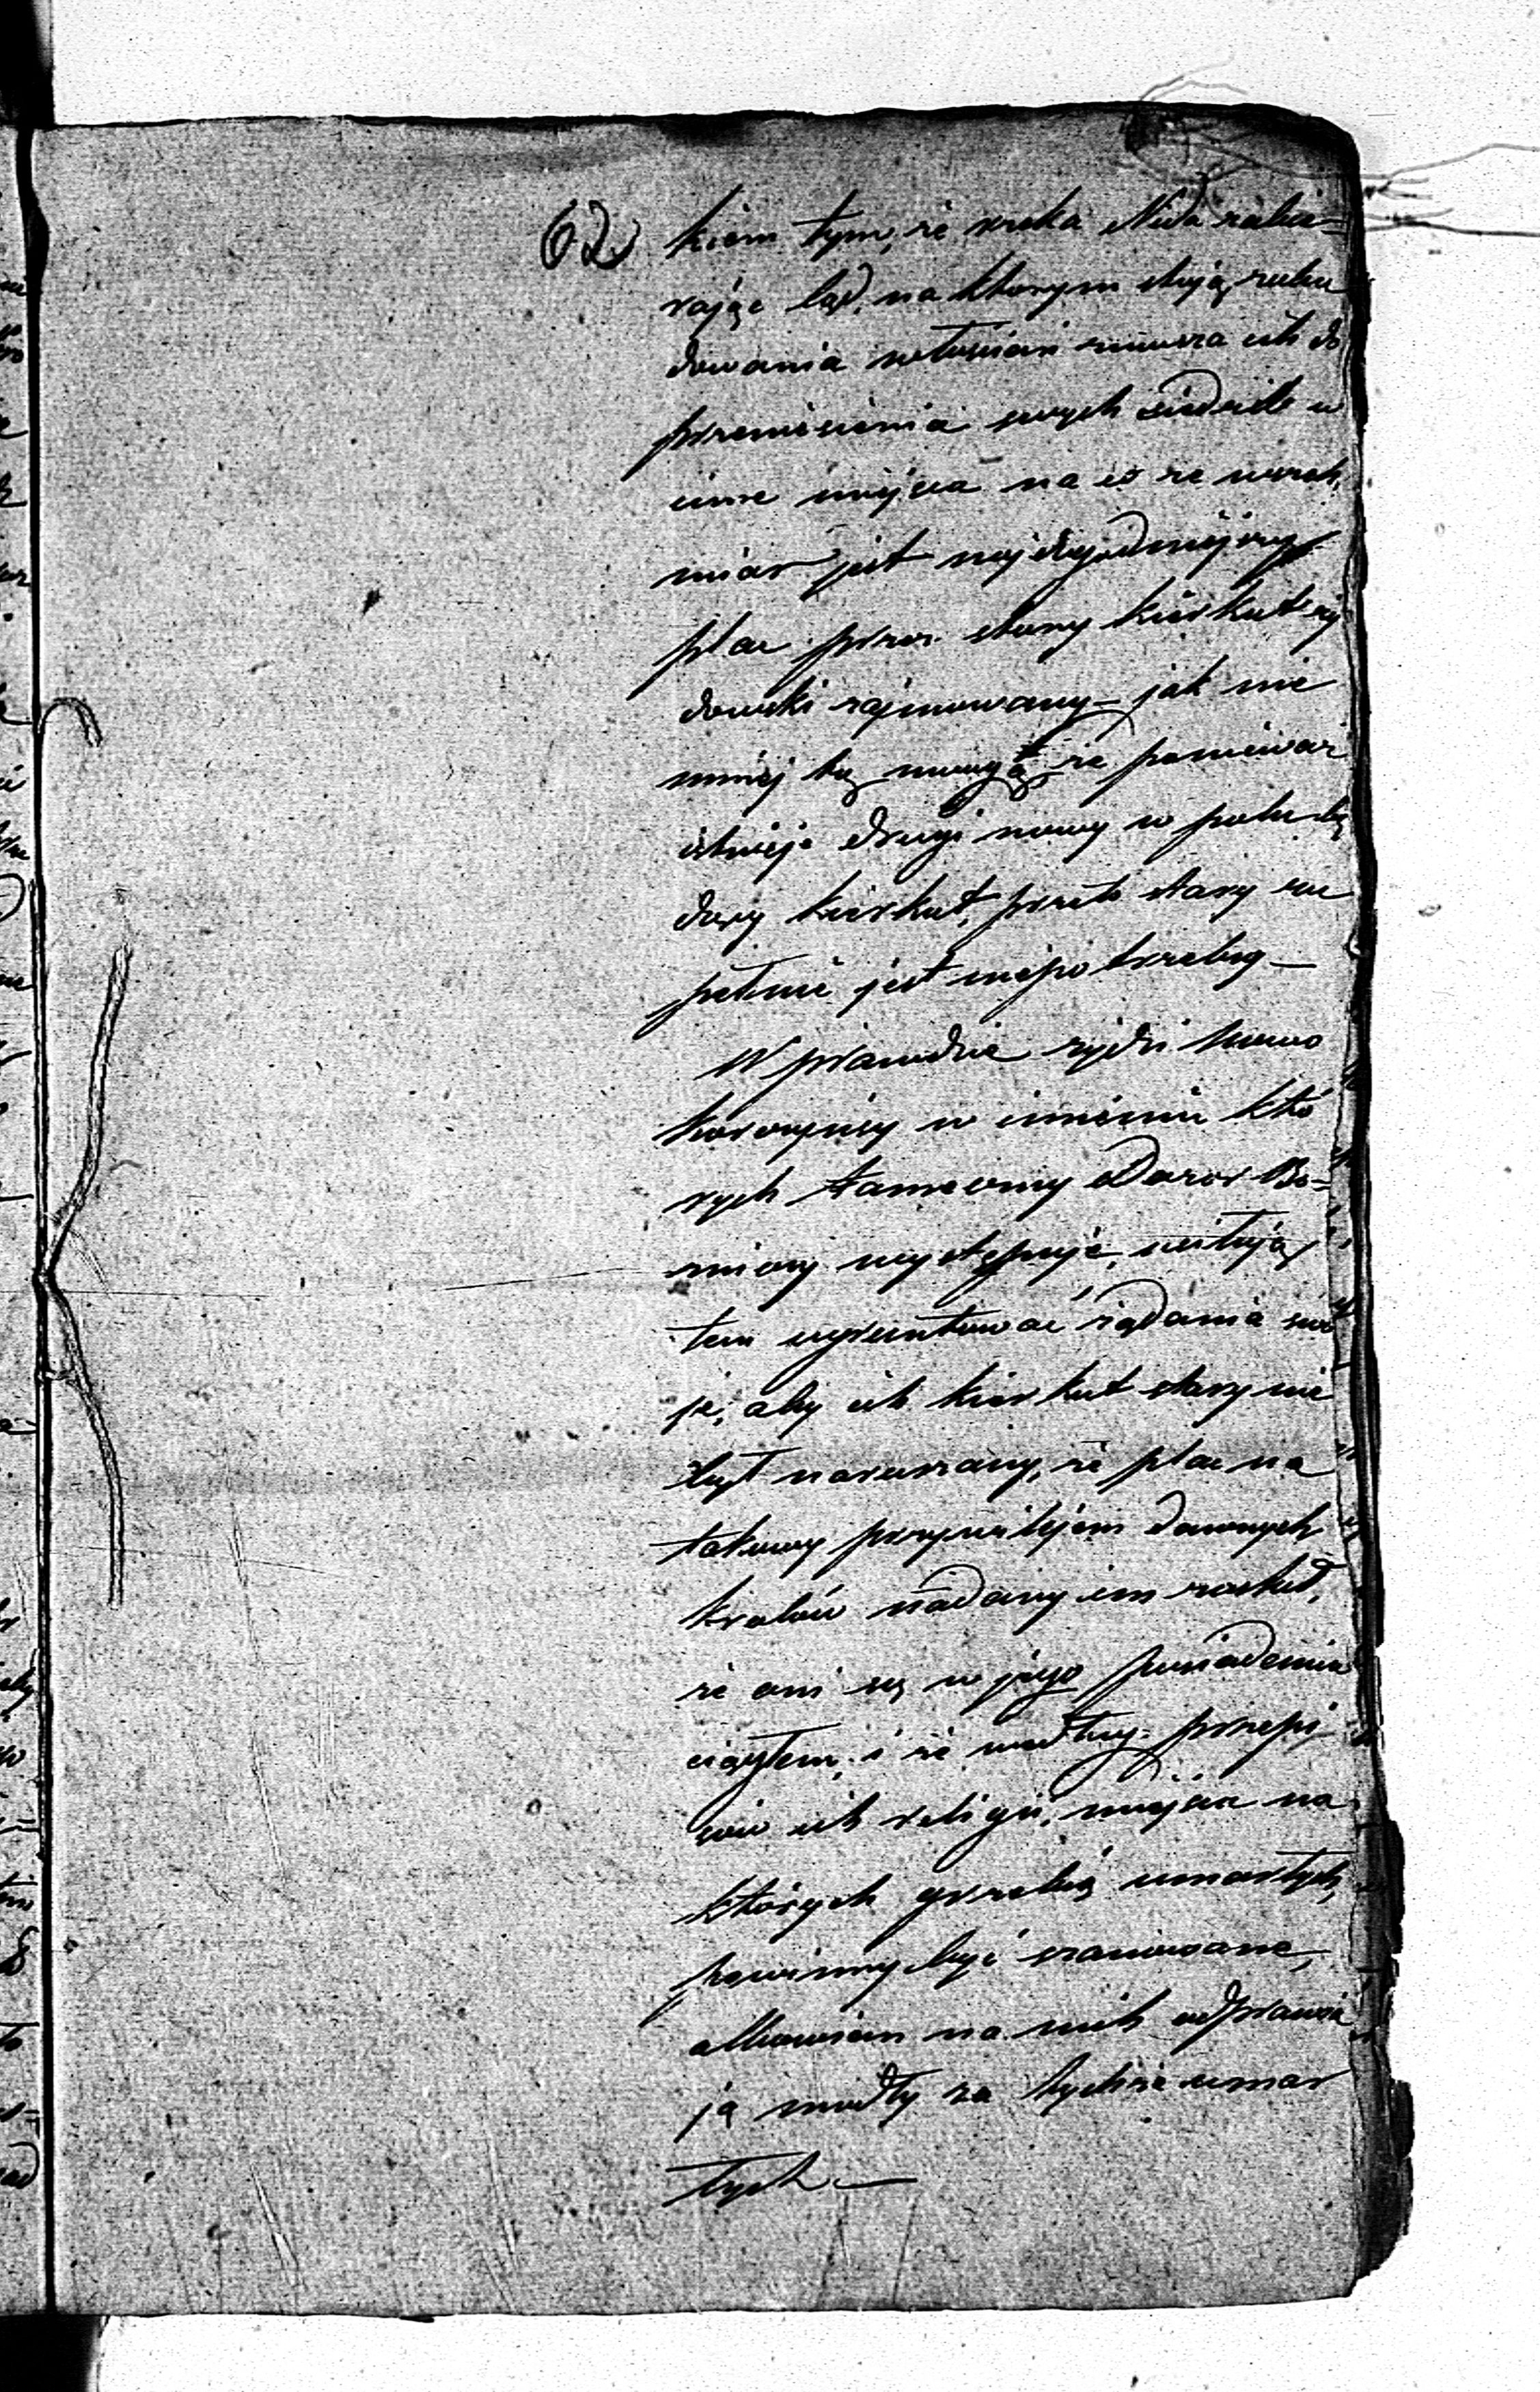 62
kiem tym, że rzeka Nida zabie-
rając ląd, na ktorym stoją zabu
dowania włościan zmusza ich do
przeniesienia swych siedzib w
inne miejsca na co ze wszech
miar jest najdogodniejszy
plac przez stary kierkut ży
dowski zajmowany – jak nie
mniej tą uwagą, że ponieważ
istnieje drugi nowy w polu bę
dący kierkut, przeto stary zu
pełnie jest niepotrzebny –
W prawdzie żydzi Nowo
korczyńscy w imieniu któ
rych starozakonny Dozor Bó-
żniczy występuje, usiłują
tem ugruntować żądania swo
je, aby ich kierkut stary nie
był naruszany, że plac na
takowy przywilejem dawnych
krolów nadany im został,
że oni są w jego posiadaniu
ciągłem, i że według przepi
sów ich religii, miejsca na
których grzebią umarłych,
powinny być szanowane,
albowiem na nich odprawia
ją modły za tychże umar
łych –